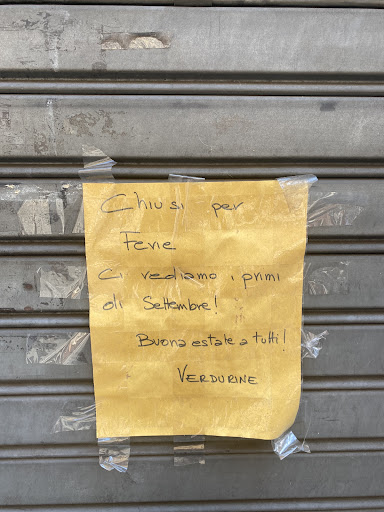 Chiusi per
Ferie
Ci vediamo i primi
di Settembre!
Buona estate a tutti!
VERDURINE